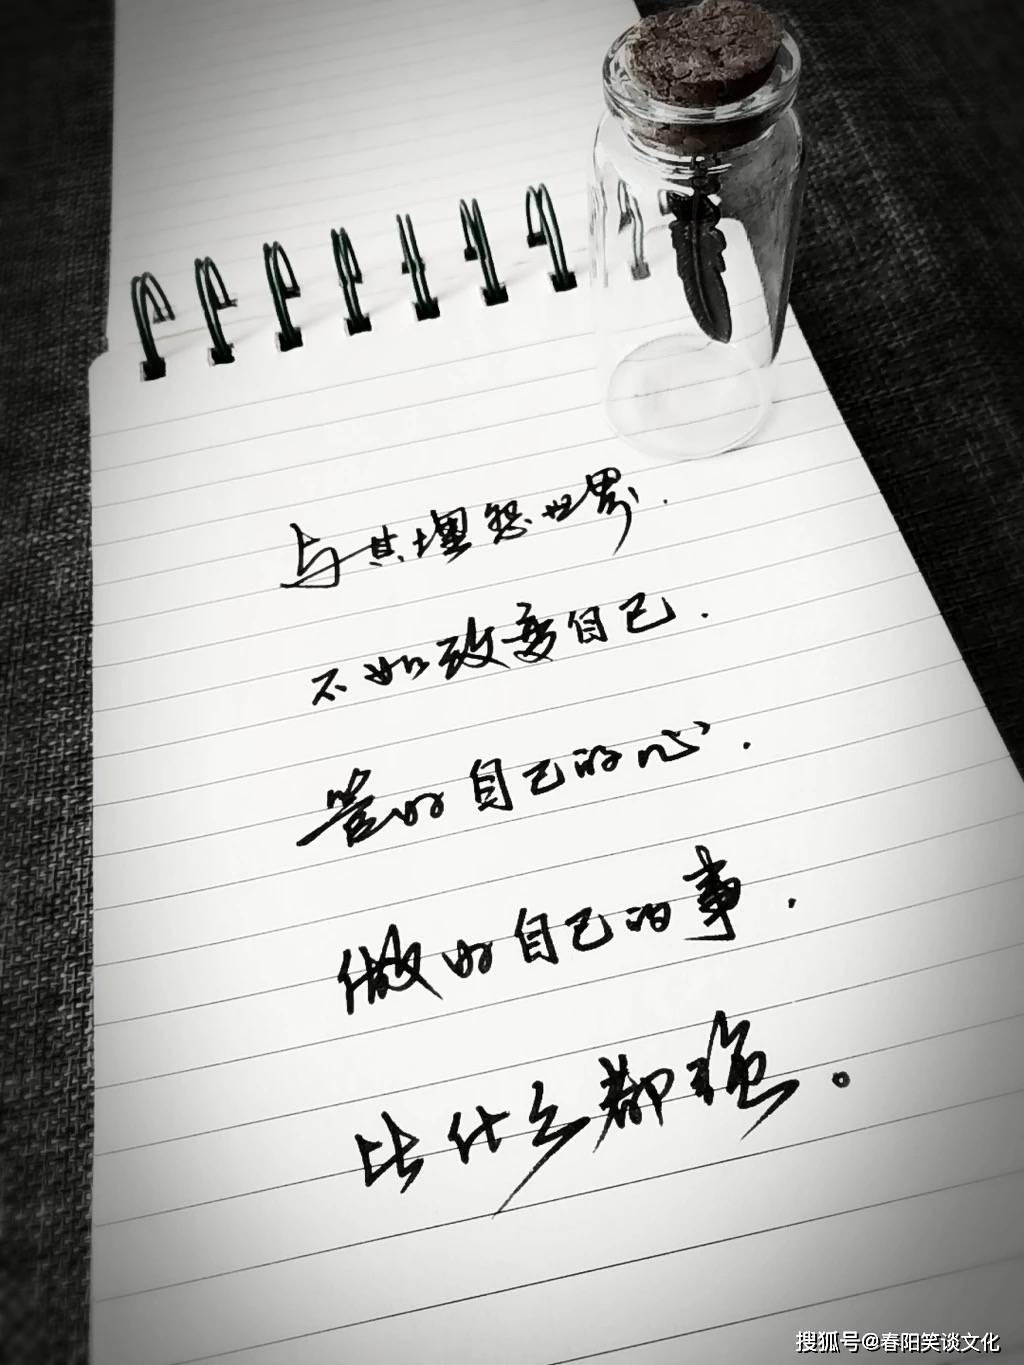 与其埋怨世界.
不如改变自己.
管好自己的心.
做好自己的事.
比什么都强。
搜狐号@春阳笑谈文化